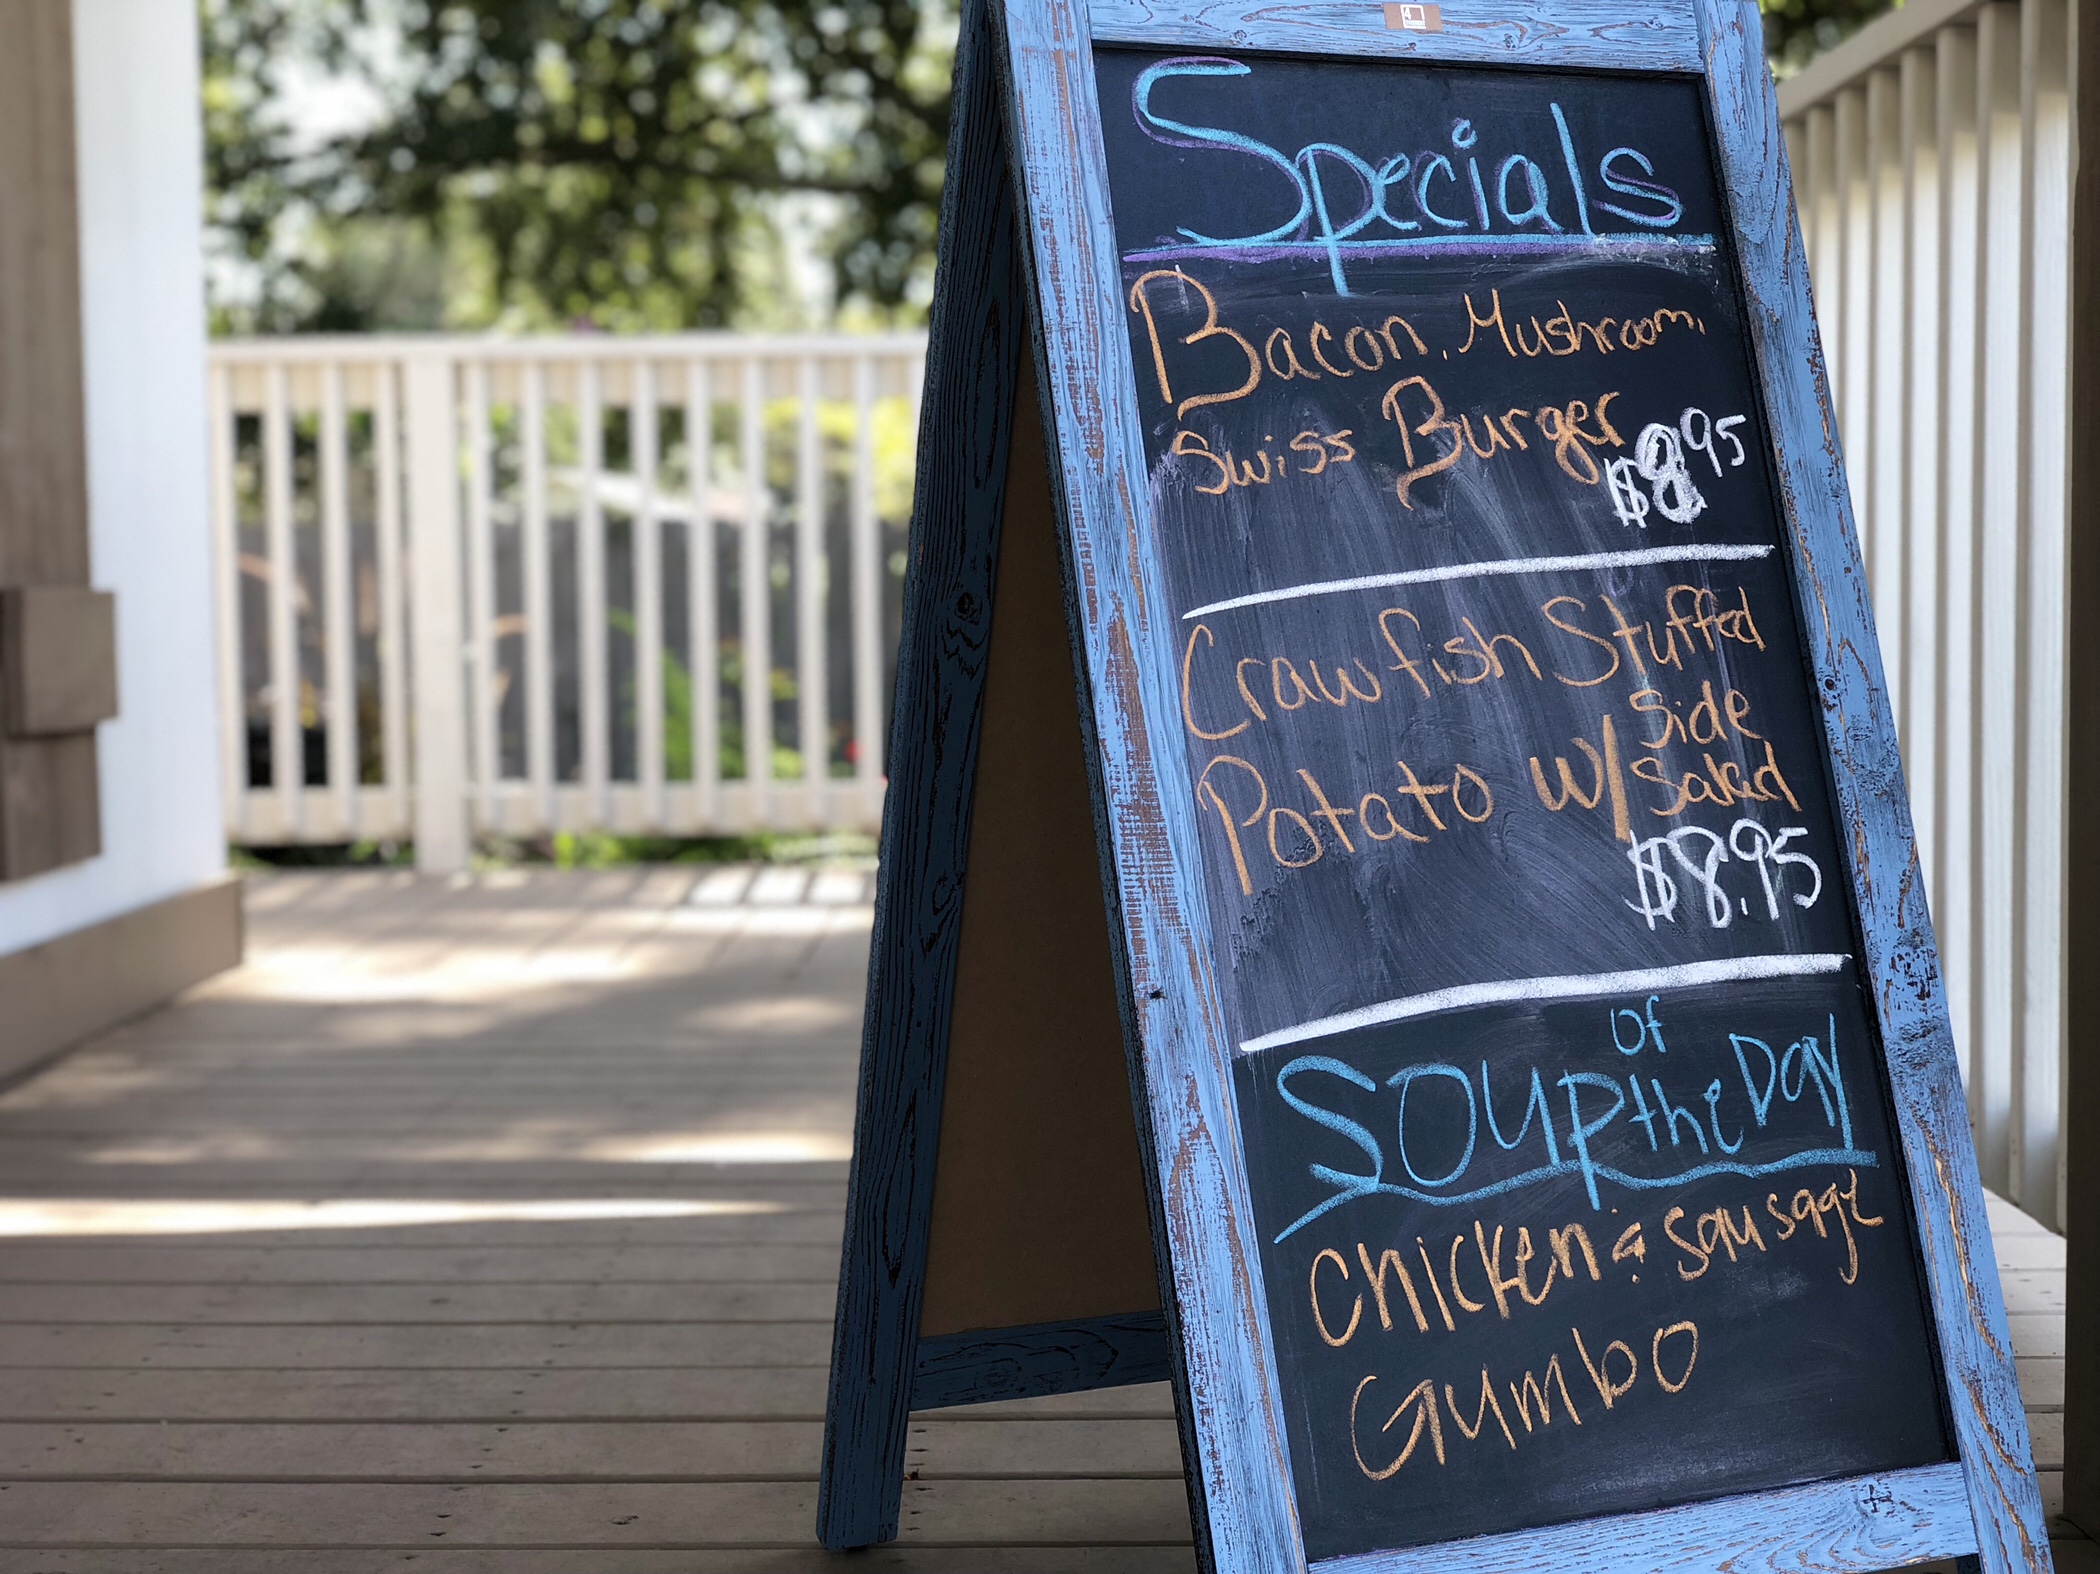 Specials
Bacon, Mushroom,
Swiss Burger $8.95
Crawfish Stuffed
Potato w/ Side Salad
$8.95
Soup of the Day
Chicken & Sausage
Gumbo